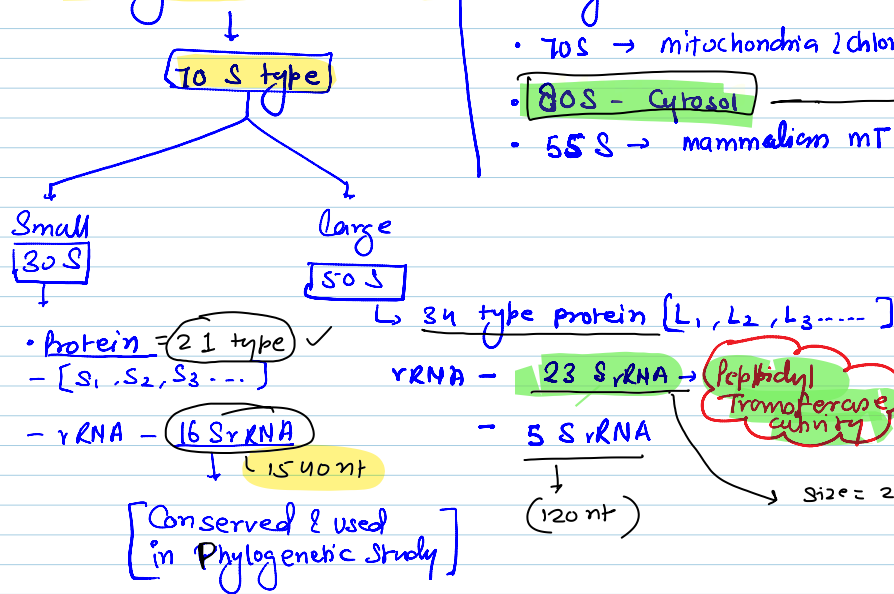 70 S type
• 70S → mitochondria & chlor
• 80S - Cytosol
• 55 S → mammalian mT
Small
30S
Large
50S
• Protein = 21 type ✓
- [S1, S2, S3 ...]
- rRNA - 16 S rRNA
1540 nt
[Conserved & used
in Phylogenetic Study]
↳ 34 type protein [L1, L2, L3......]
rRNA - 23 S rRNA → Peptidyl
Transferase
activity
- 5 S rRNA
(120 nt)
Size = 2